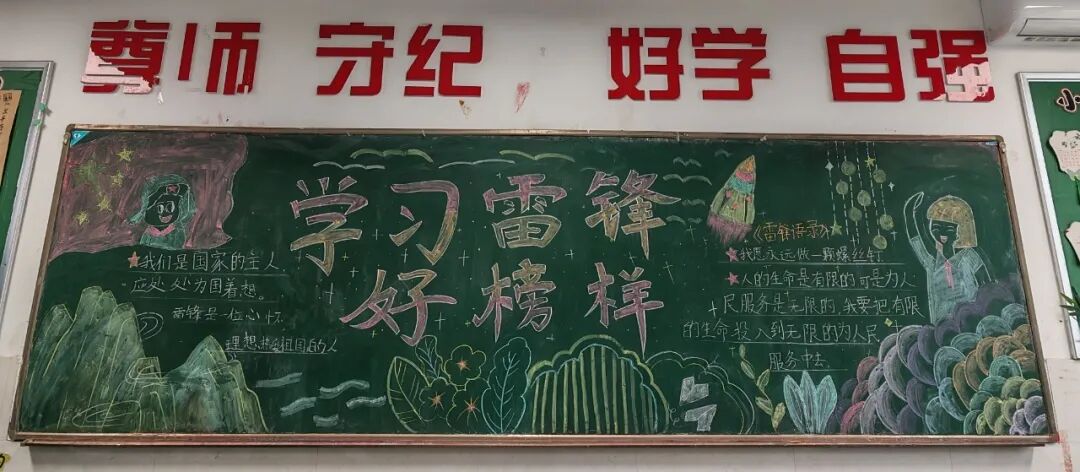 尊师 守纪 好学 自强
学习雷锋
好榜样
★我们是国家的主人
应处处为国着想。
雷锋是一位心怀
理想,热爱祖国的人
《雷锋语录》
★我愿永远做一颗螺丝钉
★人的生命是有限的,可是为人
民服务是无限的,我要把有限
的生命,投入到无限的为人民
服务中去。
小